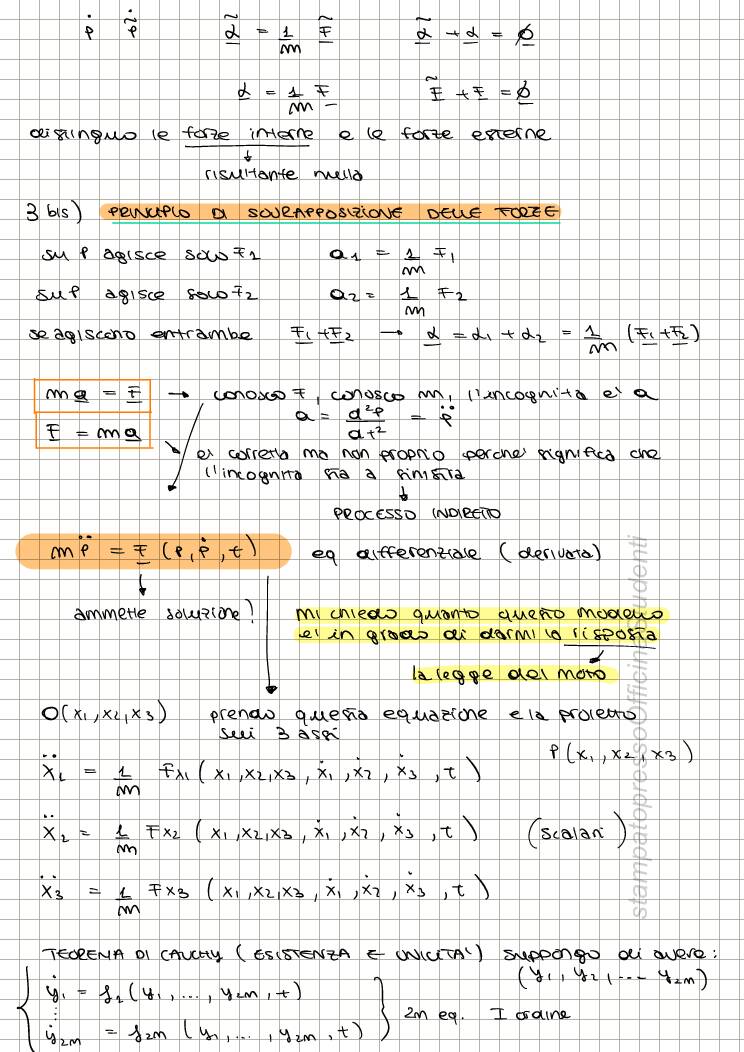 Ṗ  P̃̇  α̃ = 1/m F̃  α̃ + α = 0
α = 1/m F  F̃ + F = 0
distinguo le forze interne e le forze esterne
↓
risultante nulla
3 bis) PRINCIPIO DI SOVRAPPOSIZIONE DELLE FORZE
su P agisce solo F1  a1 = 1/m F1
su P agisce solo F2  a2 = 1/m F2
se agiscono entrambe F1+F2 → α = α1 + α2 = 1/m (F1+F2)
ma = F → conosco F, conosco m, l'incognita e' a
a = d²P/dt² = P̈
F = ma
e' corretta ma non proprio perche' significa che
l'incognita sta a sinistra
↓
PROCESSO INDIRETTO
mP̈ = F (P, Ṗ, t)  eq differenziale (derivata)
ammette soluzione?  mi chiedo quanto questo modello
e' in grado di darmi la risposta
la legge del moto
O(x1, x2, x3)  prendo questa equazione e la proietto
sui 3 assi
P(x1, x2, x3)
ẍ1 = 1/m Fx1 (x1, x2, x3, ẋ1, ẋ2, ẋ3, t)
ẍ2 = 1/m Fx2 (x1, x2, x3, ẋ1, ẋ2, ẋ3, t)  (scalari)
ẍ3 = 1/m Fx3 (x1, x2, x3, ẋ1, ẋ2, ẋ3, t)
TEOREMA DI CAUCHY (ESISTENZA E UNICITA') suppongo di avere:
(y1, y2, ... y2m)
ẏ1 = f1 (y1, ..., y2m, t)
⋮
ẏ2m = f2m (y1, ..., y2m, t)  2m eq. I ordine